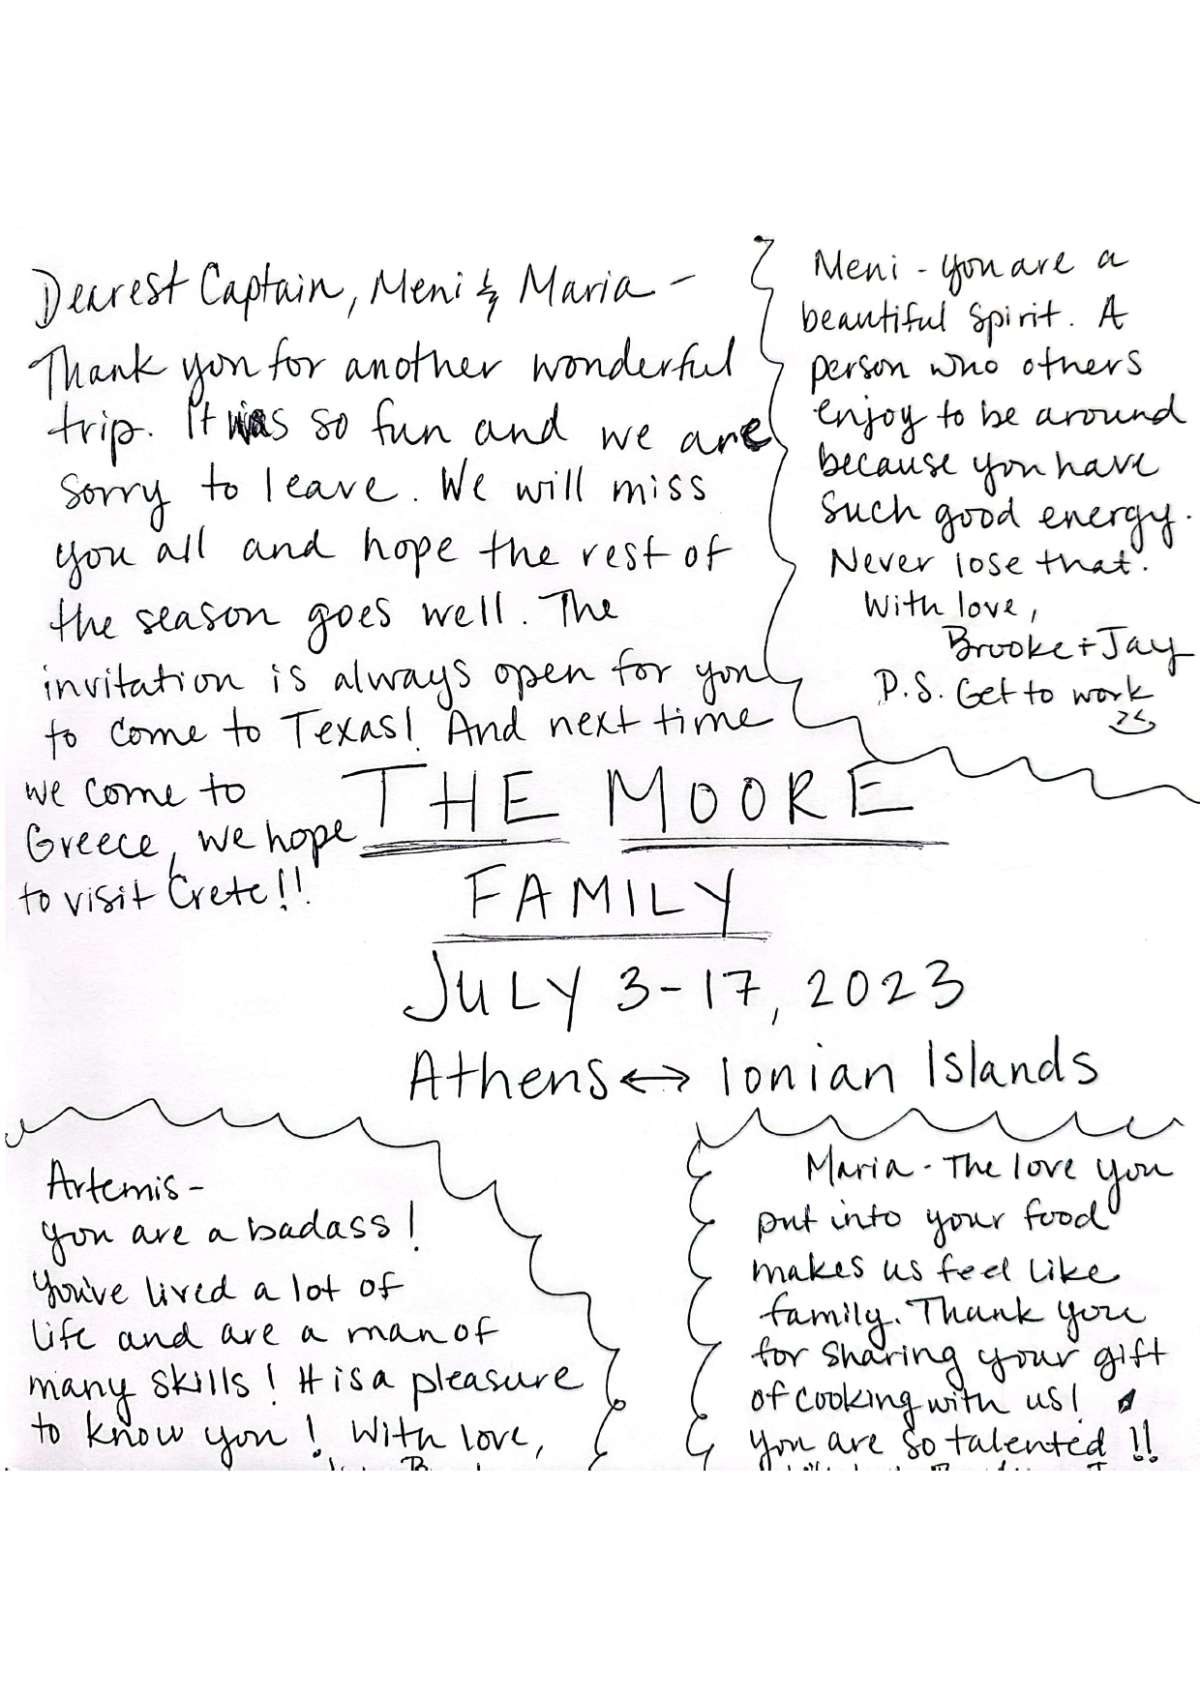 Dearest Captain, Meni & Maria -
Thank you for another wonderful
trip. It was so fun and we are
sorry to leave. We will miss
you all and hope the rest of
the season goes well. The
invitation is always open for you
to come to Texas! And next time
we come to
Greece, we hope
to visit Crete!!
Meni - you are a
beautiful spirit. A
person who others
enjoy to be around
because you have
such good energy.
Never lose that.
With love,
Brooke + Jay
P.S. Get to work
THE MOORE
FAMILY
JULY 3-17, 2023
Athens ↔ Ionian Islands
Artemis -
you are a badass!
You've lived a lot of
life and are a man of
many skills! It is a pleasure
to know you! With love,
Maria - The love you
put into your food
makes us feel like
family. Thank you
for sharing your gift
of cooking with us!
You are so talented!!